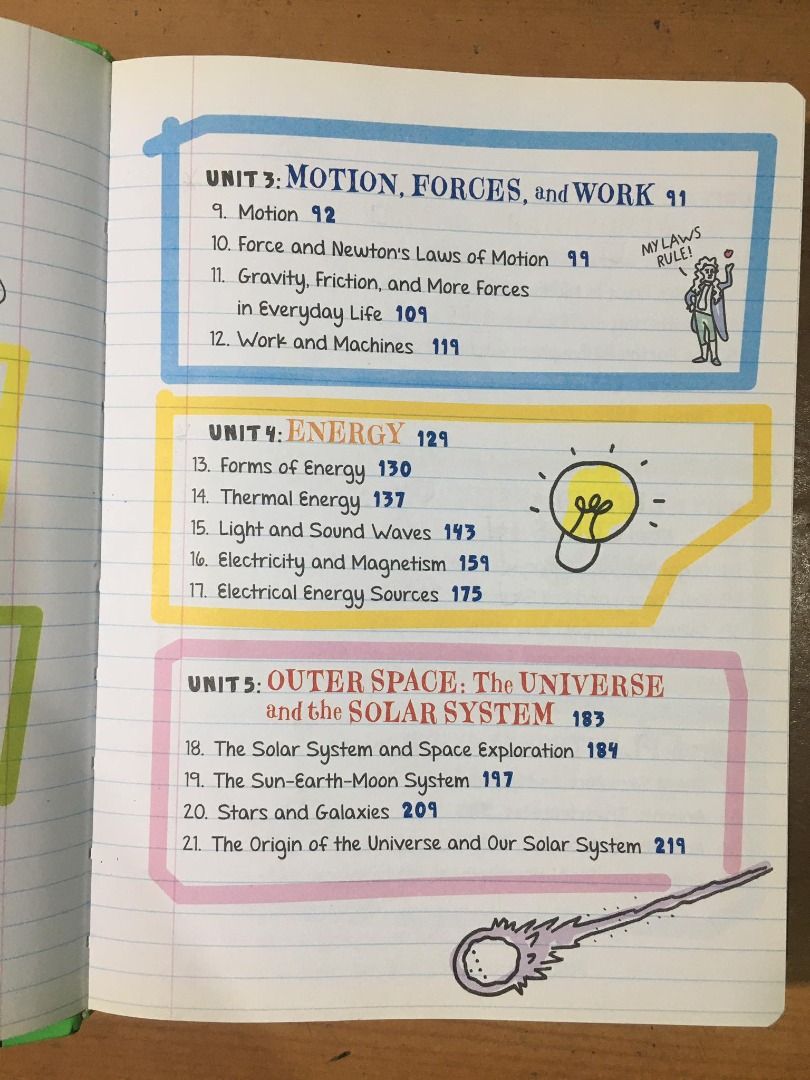 UNIT 3: MOTION, FORCES, and WORK 91
9. Motion 92
10. Force and Newton's Laws of Motion 99
11. Gravity, Friction, and More Forces
in Everyday Life 109
12. Work and Machines 119
MY LAWS
RULE!
UNIT 4: ENERGY 129
13. Forms of Energy 130
14. Thermal Energy 137
15. Light and Sound Waves 143
16. Electricity and Magnetism 159
17. Electrical Energy Sources 175
UNIT 5: OUTER SPACE: The UNIVERSE
and the SOLAR SYSTEM 183
18. The Solar System and Space Exploration 184
19. The Sun-Earth-Moon System 197
20. Stars and Galaxies 209
21. The Origin of the Universe and Our Solar System 219